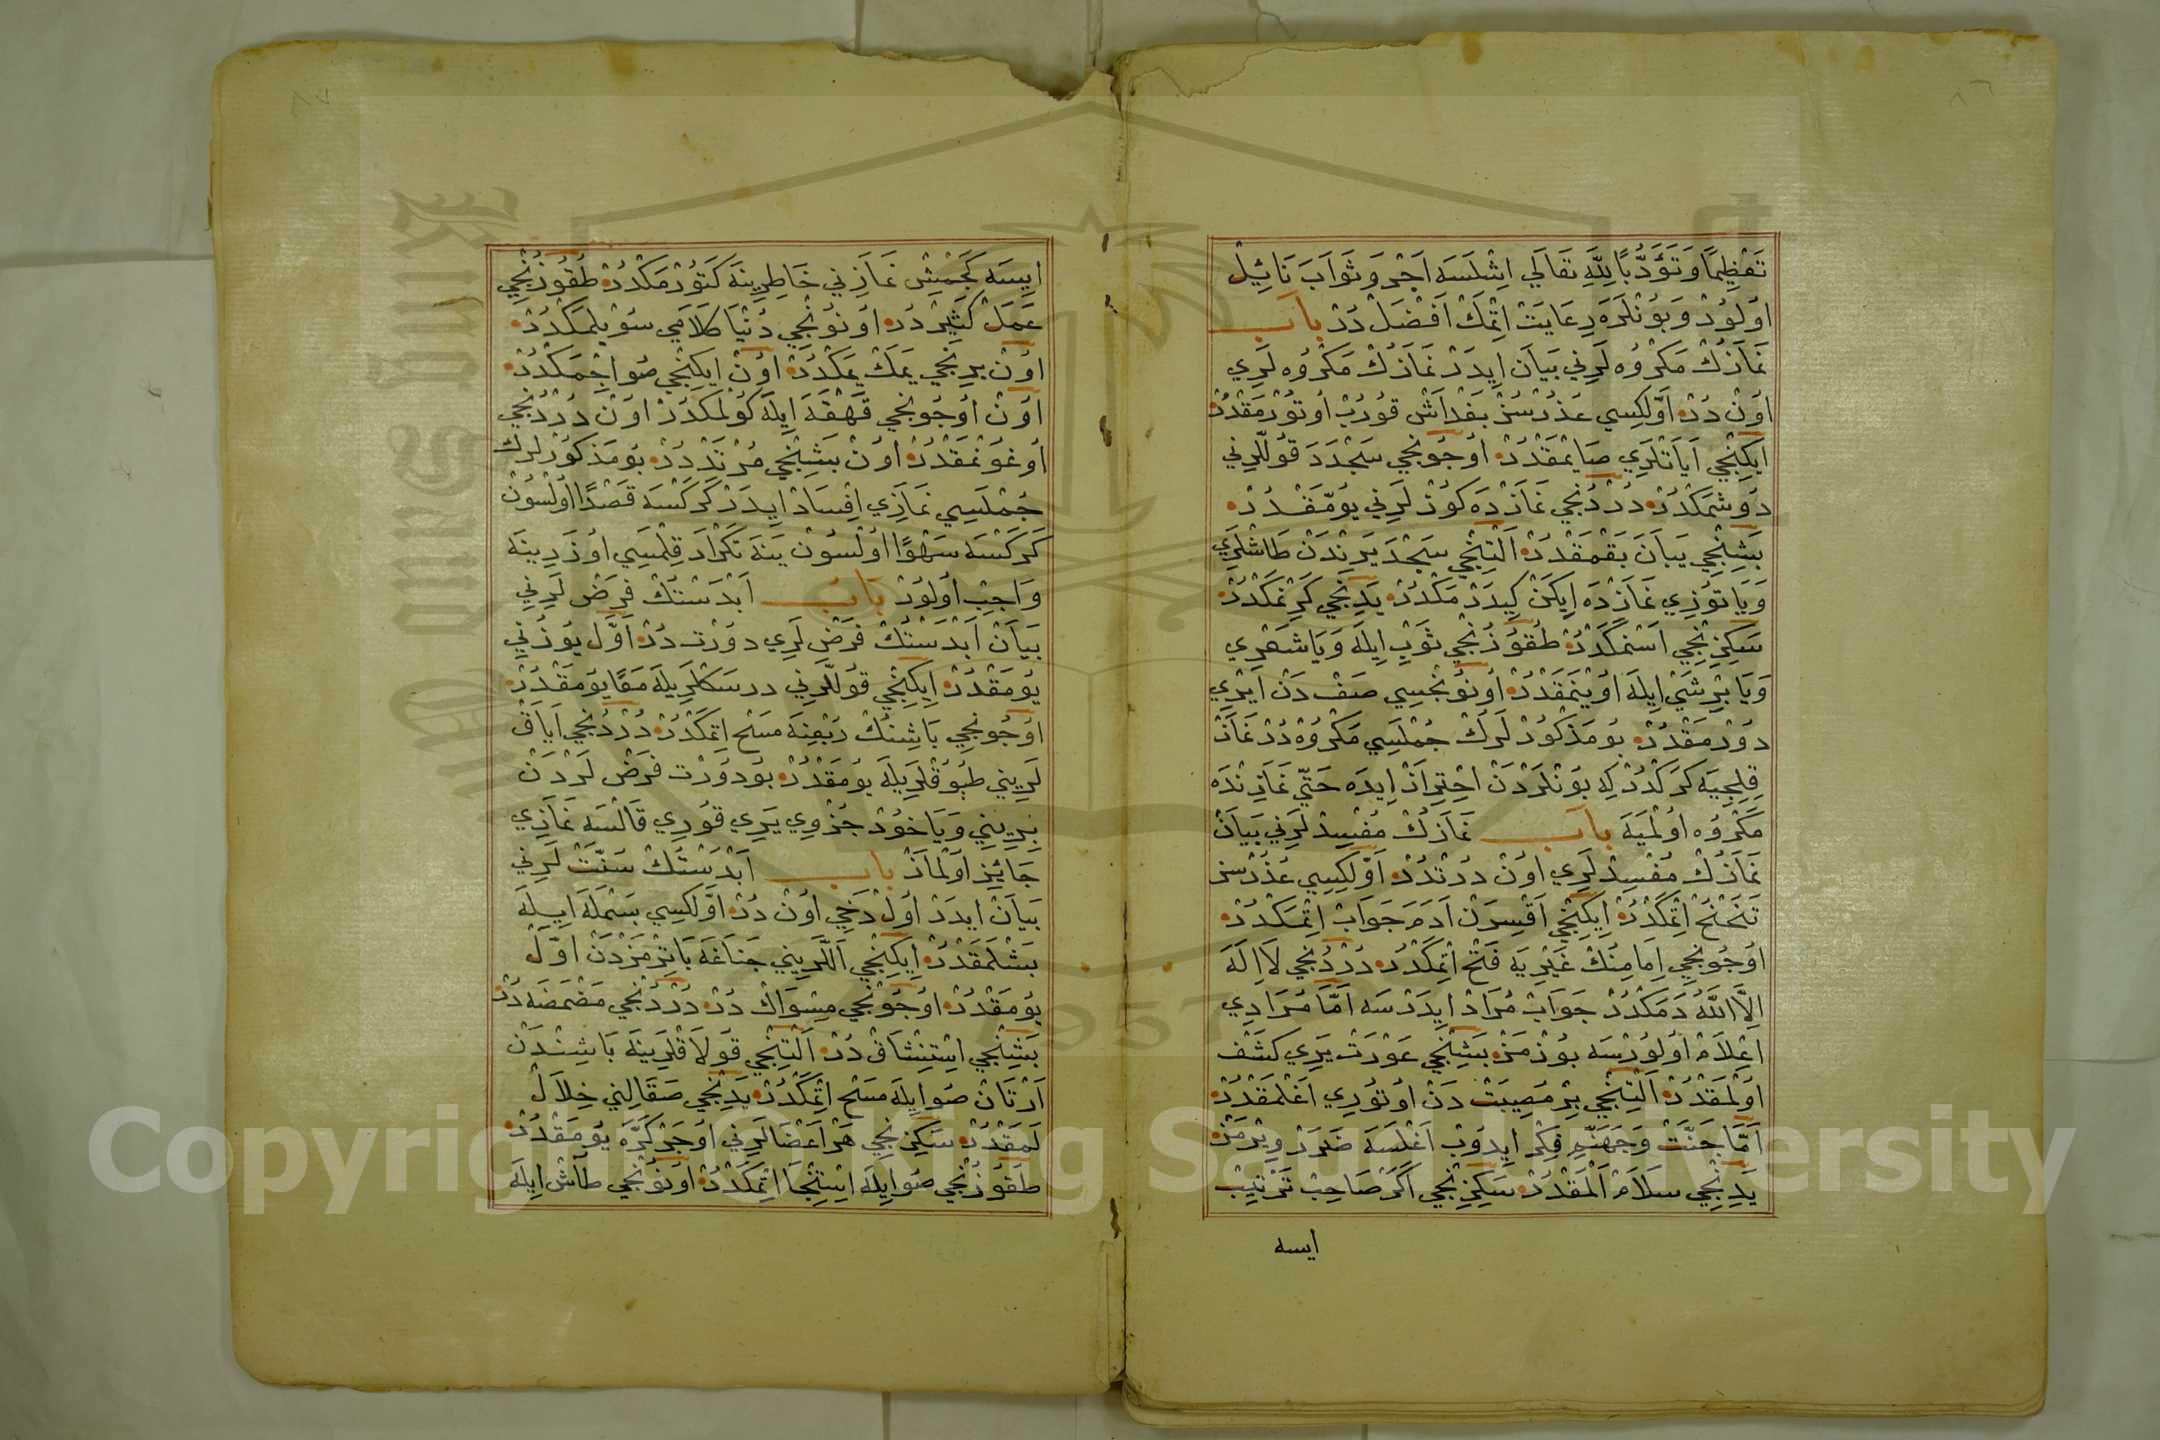 تَعْظِيمًا وَتَؤَدُّبًا لِلّٰهِ تعَالَي اِشْلَسَه اَجْر وَثَوَابَ نَائِيلْ
اوُلُورْ وَبُونْلَرَه رِعَايَتْ اِتْمَكْ اَفْضَلْ دُرْ بابــ
نَمَازُكْ مَكْرُوه لَرِني بَيَان اِيدَرْ نَمَازُكْ مَكْرُوه لَرِي
اوُنْ دُرْ اوَّلكِسِي عُذُرْسُزْ بَغْدَاشْ قوُرُبْ اوُتُرْمَقْدُرْ
اِيكِنْجِي اَيَاتْلَرِي صَايمْقْدُرْ اوُجُونْجِي سَجْدَدَ قوُلّرِني
دوُشمَكْدُرْ دُرْدُنْجِي نَمَازْدَه كوُزْ لَرِني يوُمّقْدُرْ
بَشِنْجِي يَبَانَ بَقْمَقْدُرْ اَلْتِنْجِي سَجْدَ يَرِنْدَنْ طَاشْلَرِي
وَيَا توُزِي نَمَازْدَه اِيكَنْ كِيدَرْمَكْدُرْ يَدِنْجِي كَرِنْمَكْدُرْ
سَكِزِنْجِي اَسْنمَكْدُرْ طُقوُزُنْجِي ثَوْبِ اِيلَه وَيَا شَعْرِي
وَيَا بِرْشَيْ اِيلَه اوُيْنَمَقْدُرْ اوُنوُنْجِسِي صَفْ دَنْ اَيْرِي
دوُرْمَقْدُرْ بوُ مَذْكوُرْ لَرُكْ جُمْلَسِي مَكْرُوهْ دُرْ نَمَازْ
قِلِجِيَه كَرَكْدُرْ كِه بوُنْلَرْدَنْ اِحْتِرَازْ اِيدَه حَتّي نَمَازِنْدَه
مَكْرُوه اوُلْمَيَه بابــ نَمَازُكْ مُفْسِدْ لَرِني بَيَانْ
نَمَازُكْ مُفْسِدْ لَرِي اوُنْ دُرْتدُرْ اوّلكِسِي عُذُرْسُزْ
تَنَحْنُحْ اِتْمَكْدُرْ اِيكِنْجِي اَقْسِرَنْ اَدَمَ جَوَابْ اِتْمَكْدُرْ
اوُجُونْجِي اِمَامِنُكْ غَيْرِيَه فَتْح اِتْمَكْدُرْ دُرْدُنْجِي لَا اِلَهَ
اِلَّا اللَّهُ دَمَكْدُرْ جَوَابْ مُرَادْ اِيدَرْسَه اَمَّا مُرَادِي
اِعْلَامْ اوُلوُرْسَه بوُزْمَزْ بَشِنْجِي عَوْرَتْ يَرِي كَشْف
اوُلْمَقْدُرْ اَلْتِنْجِي بِرْ مُصِيبَتْ دَنْ اوُتوُرِي اَغْلَمَقْدُرْ
اَمَّا جَنَّتْ وَجَهَنَّمِ فِكْر اِيدُوبْ اَغْلَسَه ضَرَرْ وِيْرْمَزْ
يَدِنْجِي سَلَامْ اَلْمَقْدُرْ سَكِزِنْجِي اَكَرْ صَاحِبْ تَرْتِيبْ
ايسه
اِيسَه كَجْمِشْ نَمَازِني خَاطِرِينَه كَتوُرْمَكْدُرْ طُقوُزُنْجِي
عَمَلْ كَثِيرْدُرْ اوُنوُنْجِي دُنْيَا كَلَامِي سوُيلمَكْدُرْ
اوُنْ بِرِنْجِي يَمَكْ يَمَكْدُرْ اوُنْ اِيكِنْجِي صُو اِجْمَكْدُرْ
اوُنْ اوُجُونْجِي قَهْقَهَ اِيلَه كوُلْمَكْدُرْ اوُنْ دُرْدُنْجِي
اوُغوُنْمَقْدُرْ اوُنْ بَشِنْجِي مُرْتَدْدُرْ بوُ مَذْكوُرْ لَرُكْ
جُمْلَسِي نَمَازِي اِفْسَادْ اِيدَرْ كَرَكْسَه قَصْدًا اوُلْسُوْنْ
كَرَكْسَه سَهْوًا اوُلْسُوْنْ يَنَه تَكْرَارَ قِلْمَسِي اوُزَرِينَه
وَاجِبْ اوُلوُرْ بَابــ اَبْدَسْتُكْ فَرْضْ لَرِنِي
بَيَانْ اَبْدَسْتُكْ فَرْضِ لَرِي دوُرْت دُرْ اوَّلْ يوُزُني
يوُمَقْدُرْ اِيكِنْجِي قوُللّرِني دِرسَكلَرِيلَه مَعًا يوُمَقْدُرْ
اوُجُونْجِي بَاشِنُكْ رُبْعِنَه مَسْح اِتمَكْدُرْ دُرْدُنْجِي اَيَاقْ
لَرِيني طُبوُقْلَرِيلَه يوُمَقْدُرْ بوُدوُرْت فَرْضْ لَرْدَنْ
بِرِيني وَيَاخوُدْ جُزْوِي يَرِي قوُرِي قَالْسَه نَمَازِي
جَائِيز اوُلْمَازْ بابــ اَبْدَسْتُكْ سُنَّتْ لَرِني
بَيَانْ اِيدَرْ اوُلْ دَخِي اوُنْ دُرْ اوَّلكِسِي بَسْمَلَه اِيـلَه
بَشْلَمَقْدُرْ اِيكِنْجِي اَللَّرِيني جَنَاغَه بَاتِرْمَزْدَنْ اوّلْ
يوُمَقْدُرْ اوُجُونْجِي مِسْوَاكْ دُرْ دُرْدُنْجِي مَضْمَضَه دُرْ
بَشِنْجِي اِسْتِنْشَاقْ دُرْ اَلْتِنْجِي قوُلَاقْلَرِينَه بَاشِنْدَنْ
اَرْتَانْ صُو اِيلَه مَسْح اِتْمَكْدُرْ يَدِنْجِي صَقَالِني خِلَالْ
لَمَقْدُرْ سَكِزِنْجِي هَرْ اَعْضَالَرِني اوُجَرْ كَرَّه يوُمَقْدُرْ
طُقوُزُنْجِي صُو اِيلَه اِسْتِنْجَا اِتْمَكْدُرْ اوُنوُنْجِي طَاشْ اِيلَه
Copyright © King Saud University